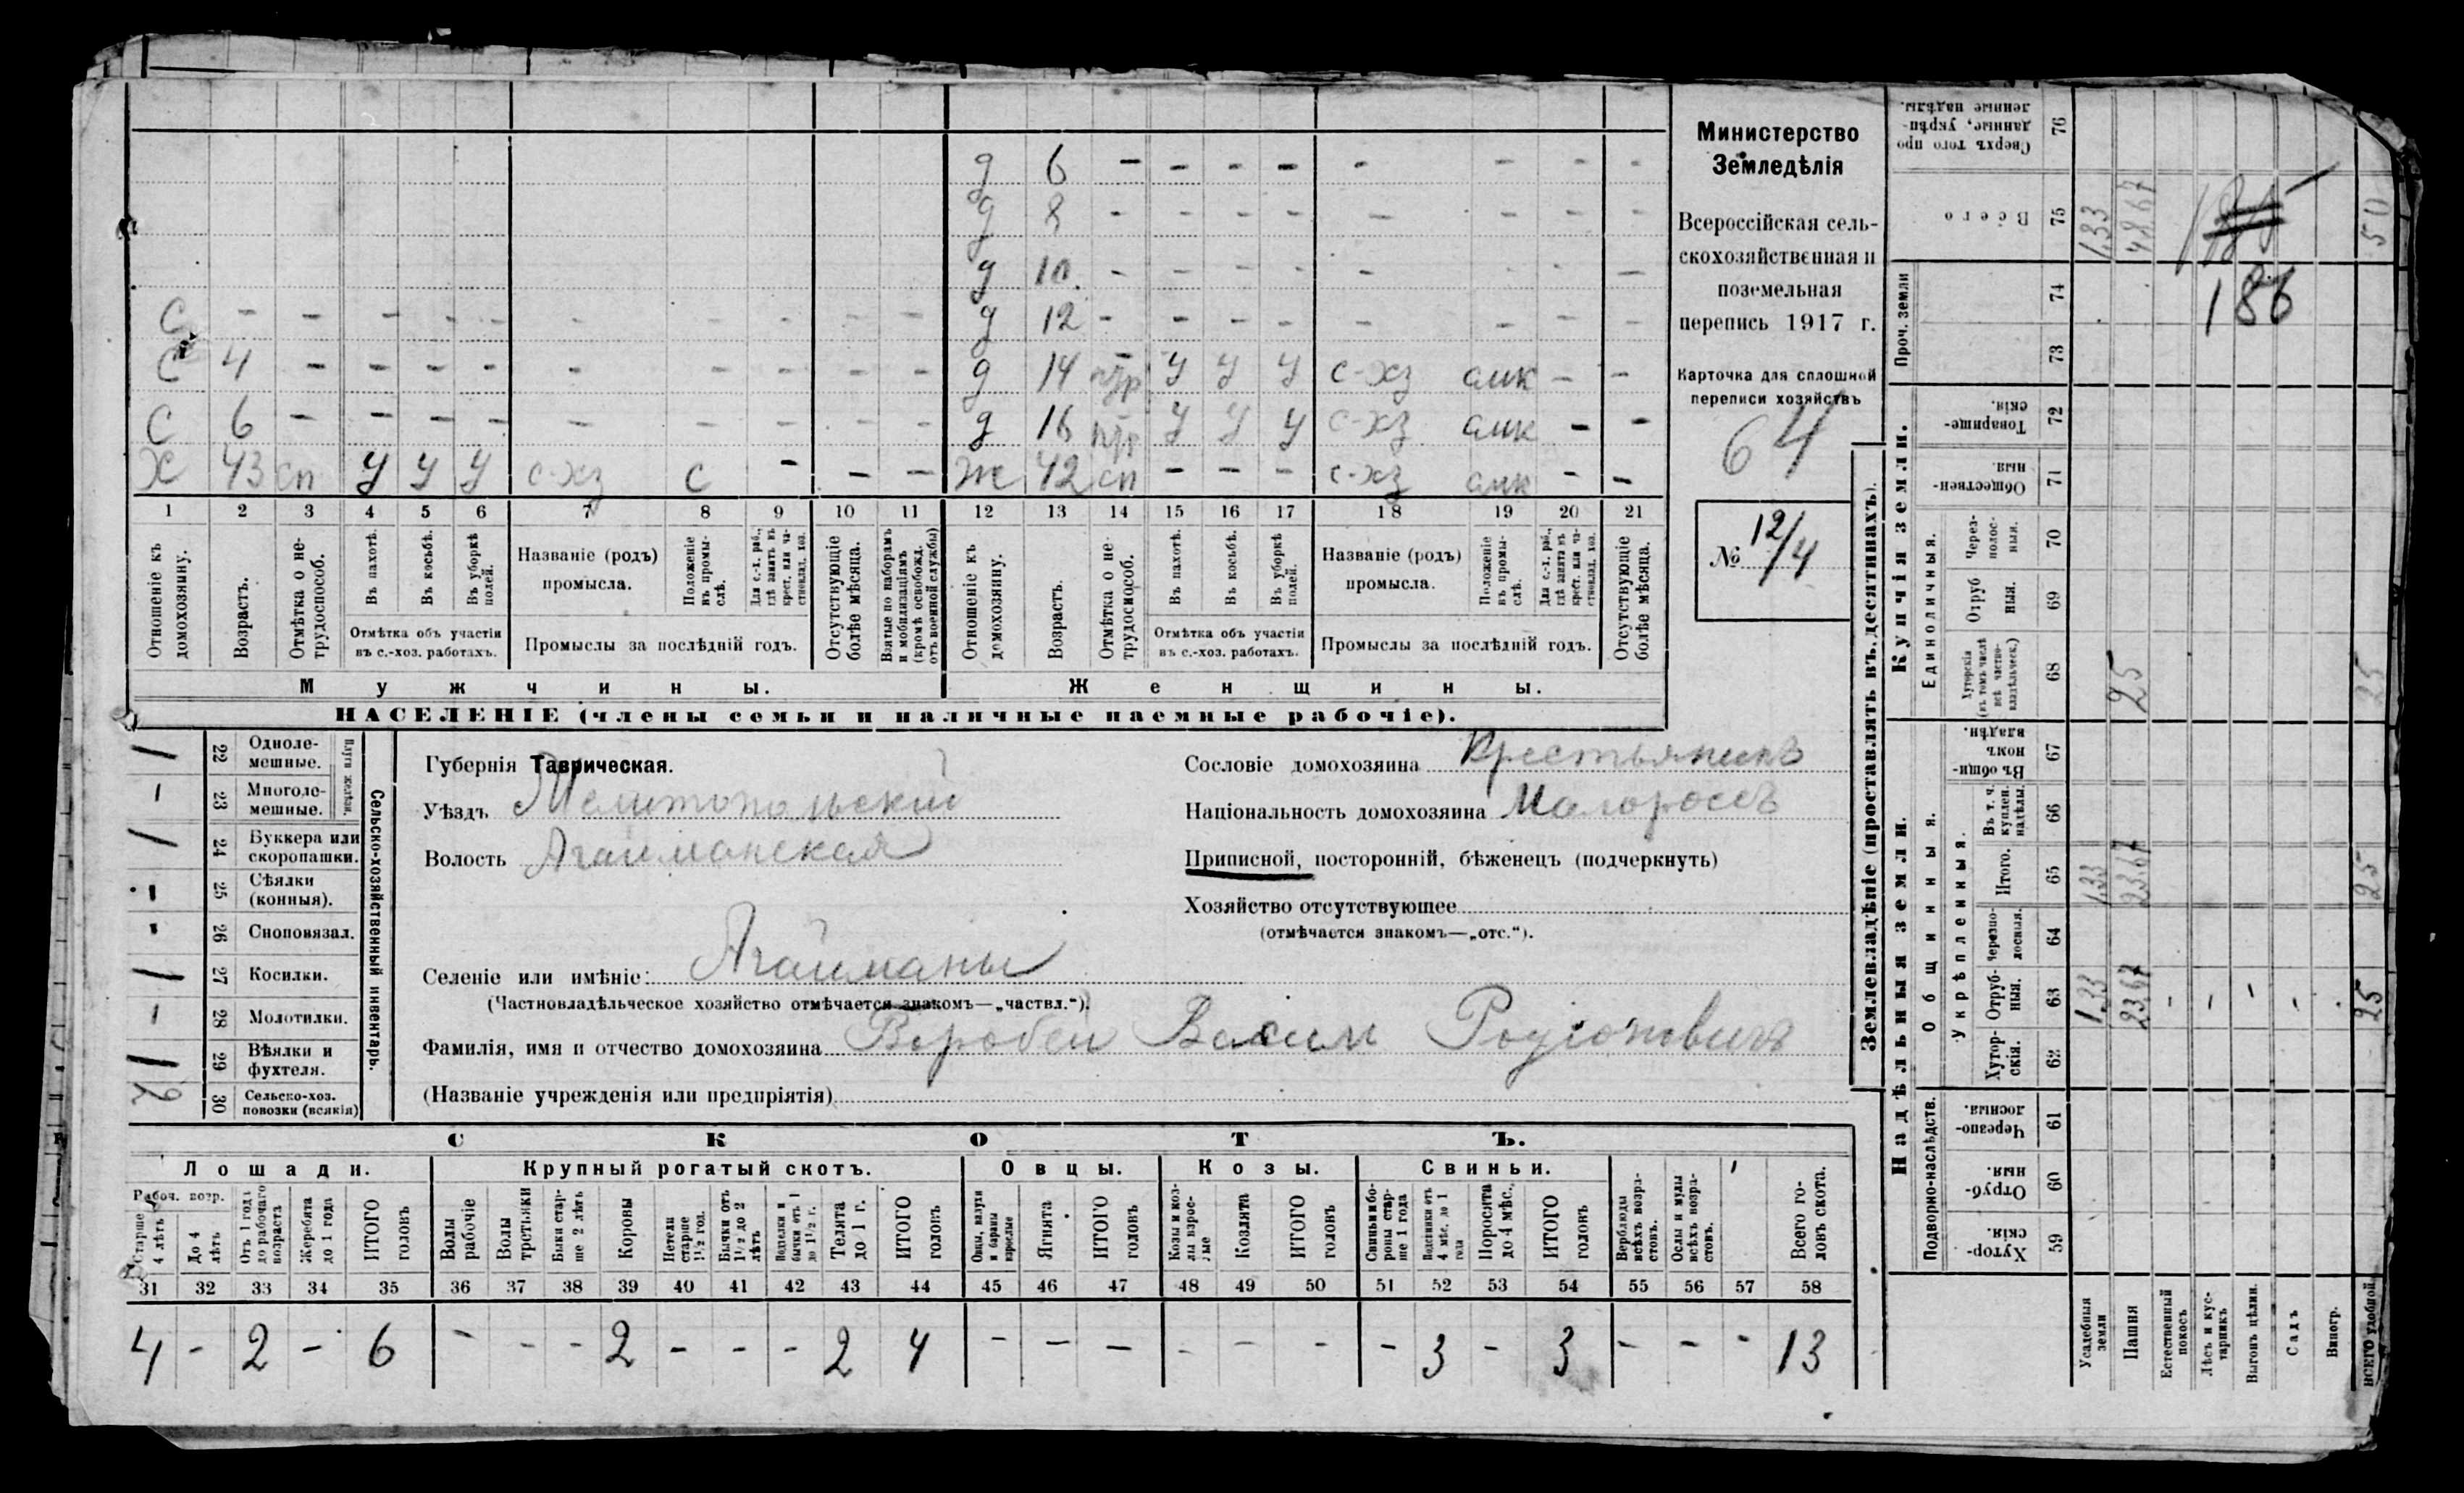 д 6 - - - - - - - -
д 8 - - - - - - - -
д 10 - - - - - - - -
С - - - - - - - - - - д 12 - - - - - - - -
С 4 - - - - - - - - - д 14 У У У с-хз амк - -
С 6 - - - - - - - - - д 16 У У У с-хз амк - -
Х 43 сп У У У с-хз С - - - Ж 42 сп - - - с-хз амк - -
1 2 3 4 5 6 7 8 9 10 11 12 13 14 15 16 17 18 19 20 21
Отношеніе къ домохозяину.
Возрастъ.
Отмѣтка о нетрудоспособ.
Въ пахотѣ.
Въ косьбѣ.
Въ уборкѣ полей.
Отмѣтка объ участіи
въ с.-хоз. работахъ.
Названіе (родъ)
промысла.
Положеніе въ промыслѣ.
Для с.-х. раб., гдѣ занятъ въ крест. или частновлад. хоз.
Промыслы за послѣдній годъ.
Отсутствующіе болѣе мѣсяца.
Взятые по наборамъ и мобилизаціямъ (кромѣ освобожд. отъ военной службы)
Отношеніе къ домохозяину.
Возрастъ.
Отмѣтка о нетрудоспособ.
Въ пахотѣ.
Въ косьбѣ.
Въ уборкѣ полей.
Отмѣтка объ участіи
въ с.-хоз. работахъ.
Названіе (родъ)
промысла.
Положеніе въ промыслѣ.
Для с.-х. раб., гдѣ занятъ въ крест. или частновлад. хоз.
Промыслы за послѣдній годъ.
Отсутствующіе болѣе мѣсяца.
Мужчины. Женщины.
НАСЕЛЕНІЕ (члены семьи и наличные наемные рабочіе).
Министерство
Земледѣлія
Всероссійская сель-
скохозяйственная и
поземельная
перепись 1917 г.
Карточка для сплошной
переписи хозяйствъ
64
№ 12/4
Сельско-хозяйственный инвентарь.
Плуги желѣзн.
1 22 Одноле-
мешные.
- 23 Многоле-
мешные.
1 24 Буккера или
скоропашки.
- 25 Сѣялки
(конныя).
- 26 Сноповязал.
1 27 Косилки.
- 28 Молотилки.
1 29 Вѣялки и
фухтеля.
30 Сельско-хоз.
повозки (всякія)
Губернія Таврическая.
Уѣздъ Мелитопольскій
Волость Агайманская
Селеніе или имѣніе: Агайманы
(Частновладѣльческое хозяйство отмѣчается знакомъ—„частвл.“).
Фамилія, имя и отчество домохозяина Воробей Васил Родіоновичъ
(Названіе учрежденія или предпріятія)
Сословіе домохозяина Крестьянинъ
Національность домохозяина Малороссъ
Приписной, посторонній, бѣженецъ (подчеркнуть)
Хозяйство отсутствующее
(отмѣчается знакомъ—„отс.“).
СКОТЪ.
Лошади. Крупный рогатый скотъ. Овцы. Козы. Свиньи.
Рабоч. возр.
Старше 4 лѣтъ
До 4 лѣтъ
Отъ 1 года до рабочаго возраста
Жеребята до 1 года
ИТОГО головъ
Волы рабочіе
Волы третьяки
Быки старше 2 лѣтъ
Коровы
Нетели старше 1½ год.
Бычки отъ 1½ до 2 лѣтъ
Подтелки и бычки отъ 1 до 1½ г.
Телята до 1 г.
ИТОГО головъ
Овцы, валухи и бараны взрослые
Ягнята
ИТОГО головъ
Козы и козлы взрослые
Козлята
ИТОГО головъ
Свиньи и бороны старше 1 года
Подсвинки отъ 4 мѣс. до 1 года
Поросята до 4 мѣс.
ИТОГО головъ
Верблюды всѣхъ возрастовъ.
Ослы и мулы всѣхъ возрастовъ.
Всего головъ скота.
31 32 33 34 35 36 37 38 39 40 41 42 43 44 45 46 47 48 49 50 51 52 53 54 55 56 57 58
4 - 2 - 6 - - - 2 - - - 2 4 - - - - - - - 3 - 3 - - - 13
Землевладѣніе (проставлять въ десятинахъ).
Сверхъ того проданные, укрѣпленные надѣлы. 76
Всего 75 1,33 48,67 50
186
Проч. земли 74
73
Купчія земли.
Товарищескія. 72
Общественныя. 71
Единоличныя.
Черезполосныя. 70
Отрубныя. 69
Хуторскія (въ томъ числѣ всѣ частновладѣльческ.) 68 25 25
Надѣльныя земли.
Общинныя.
Въ общинномъ владѣн. 67
Укрѣпленныя.
Въ т. ч. куплен. надѣлы. 66
Итого. 65 1,33 23,67 25
Черезполосныя. 64
Отрубныя. 63 1,33 23,67 - - - - . 25
Хуторскія. 62
Подворно-наслѣдств.
Черезполосныя. 61
Отрубныя. 60
Хуторскія. 59
Усадебныя земли
Пашня
Естественный покосъ
Лѣсъ и кустарникъ
Выгонъ цѣлин.
Садъ
Виногр.
ВСЕГО удобной